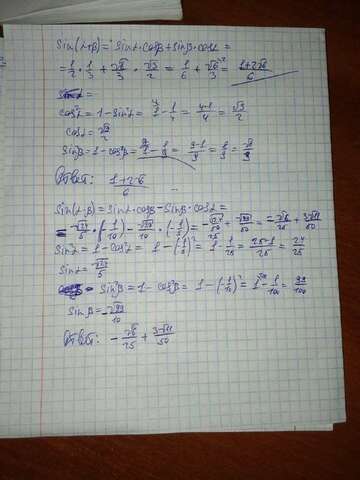 Sin(α+β) = Sinα·cosβ + Sinβ·cosα =
= 1/2 · 1/3 + 2√2/3 · √3/2 = 1/6 + √6/3 = 1+2√6/6
Sinα =
cos²α = 1 - Sin²α = 1 - 1/4 = 4-1/4 = √3/2
cosα = √3/2
Sin²β = 1 - cos²β = 1 - 1/9 = 9-1/9 =
Ответ: 1+2√6/6
Sin(α-β) = Sinα·cosβ - Sinβ·cosα =
= -√24/5 · (-1/10) - √99/10 · (-1/5) = -√24/50 + √99/50 = -2√6/25 + 3√11/50
Sin²α = 1 - cos²α = 1 - (-1/5)² = 1 - 1/25 = 25-1/25 = 24/25
Sinα = √24/5
Sin²β = 1 - cos²β = 1 - (-1/10)² = 1 - 1/100 = 99/100
Sinβ = -√99/10
Ответ: - 2√6/25 + 3√11/50